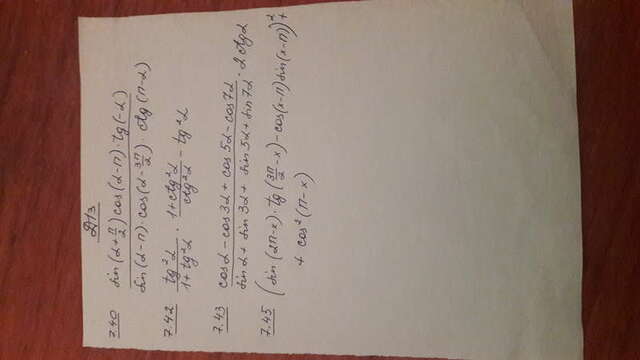 Д/З
7.40 sin(α+π/2)cos(α-π)·tg(-α) / sin(α-π)·cos(α-3π/2)·ctg(π-α)
7.42 tg²α / 1+tg²α · 1+ctg²α / ctg²α - tg²α
7.43 cosα-cos3α+cos5α-cos7α / sinα+sin3α+sin5α+sin7α · 2ctgα
7.45 (sin(2π-x)·tg(3π/2-x)-cos(x-π)sin(x-π))²+
+ cos²(π-x)